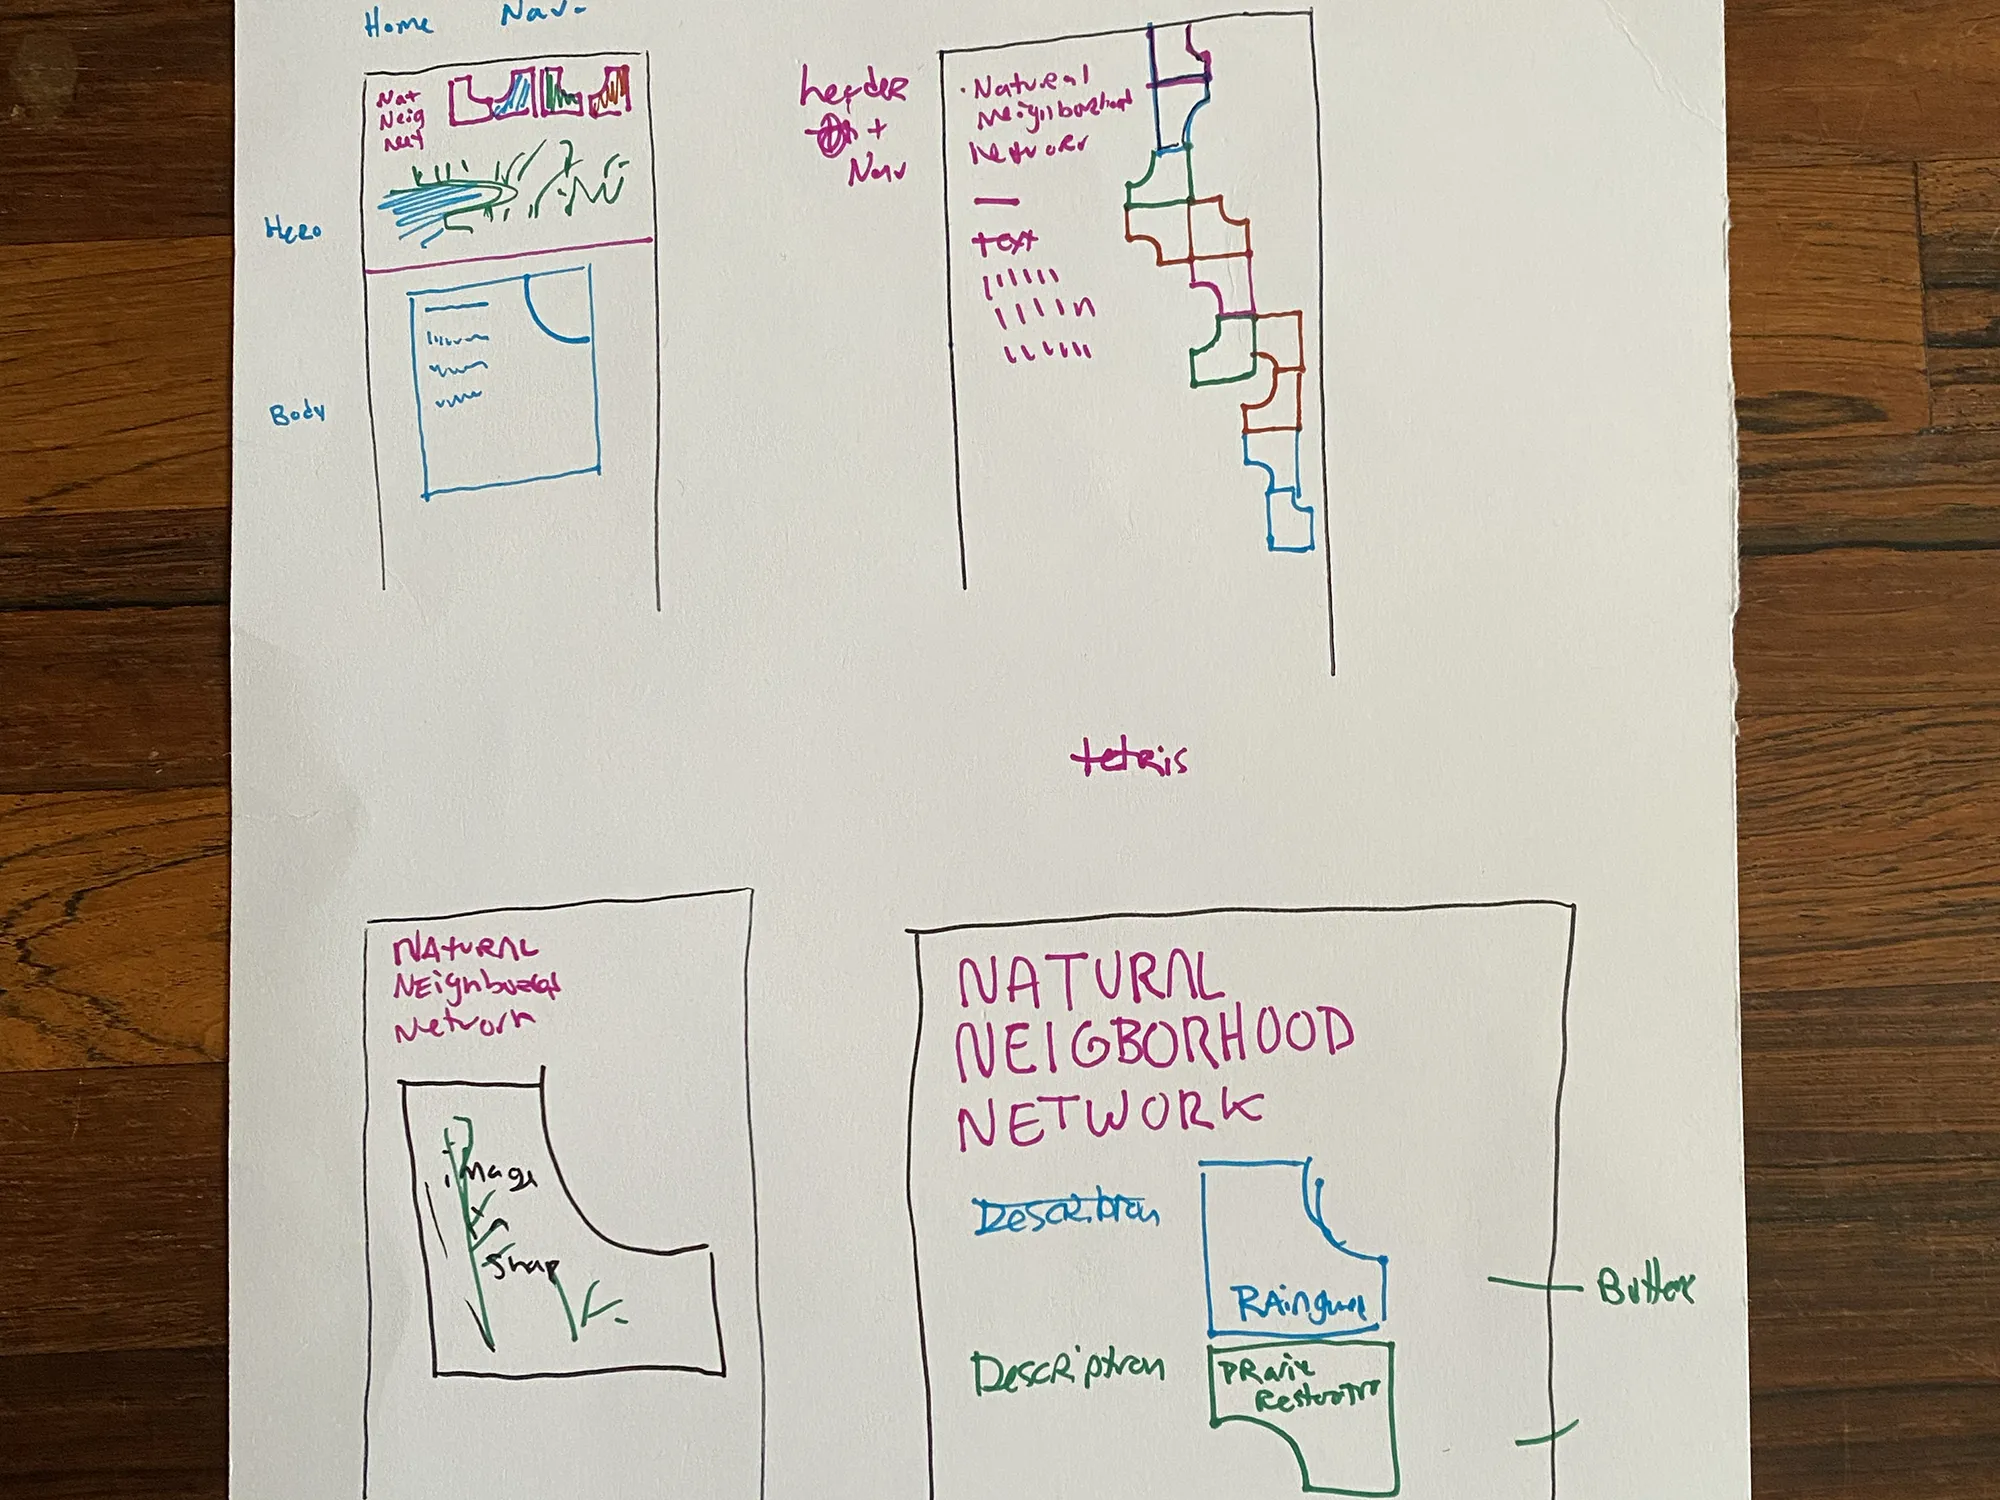 Home Nav.
Nat
Neig
Net
Hero
Body
header
+
Nav
Natural
Neighborhood
Network
text
tetris
NATURAL
NEighborhood
Network
image
Shap
NATURAL
NEIGBORHOOD
NETWORK
Description
RAin
Button
Description
PRarie
Restoration